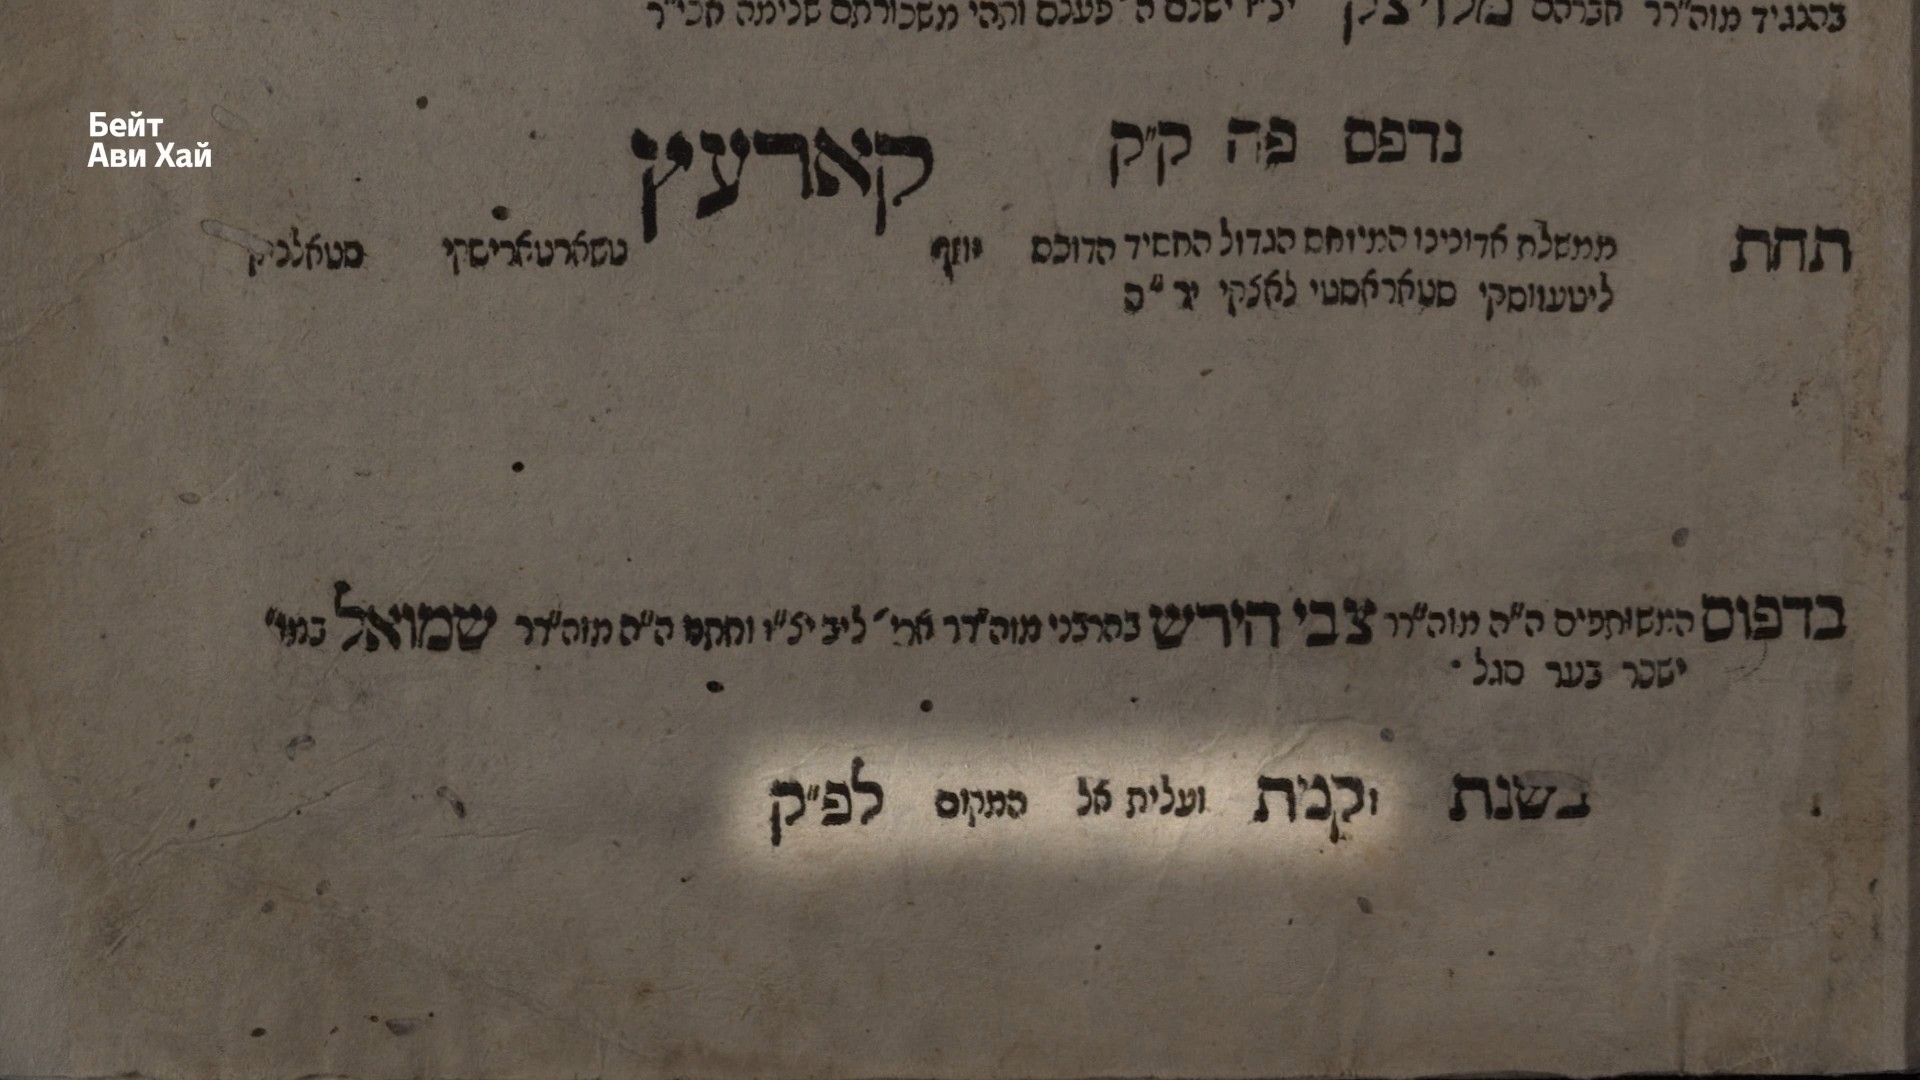 Бейт
Ави Хай
בהנגיד מוה"רר אברהם ישלם ה' פעלם ותהי משכורתם שלימה אכי"ר
נדפס פה ק"ק קארעץ
תחת ממשלת אדונינו המיוחס הגדול החסיד הדוכס יוזף טשארטארישקי סטאלניק
ליטעווסקי סטאראסטי לאצקי יר"ה
בדפוס המשותפים ה"ה מוה"רר צבי הירש בהרבני מוה"רר ארי' ליב יצ"ו וחתנו ה"ה מוה"רר שמואל במו"
ישכר בער סגל
בשנת וקמת ועלית אל המקום לפ"ק